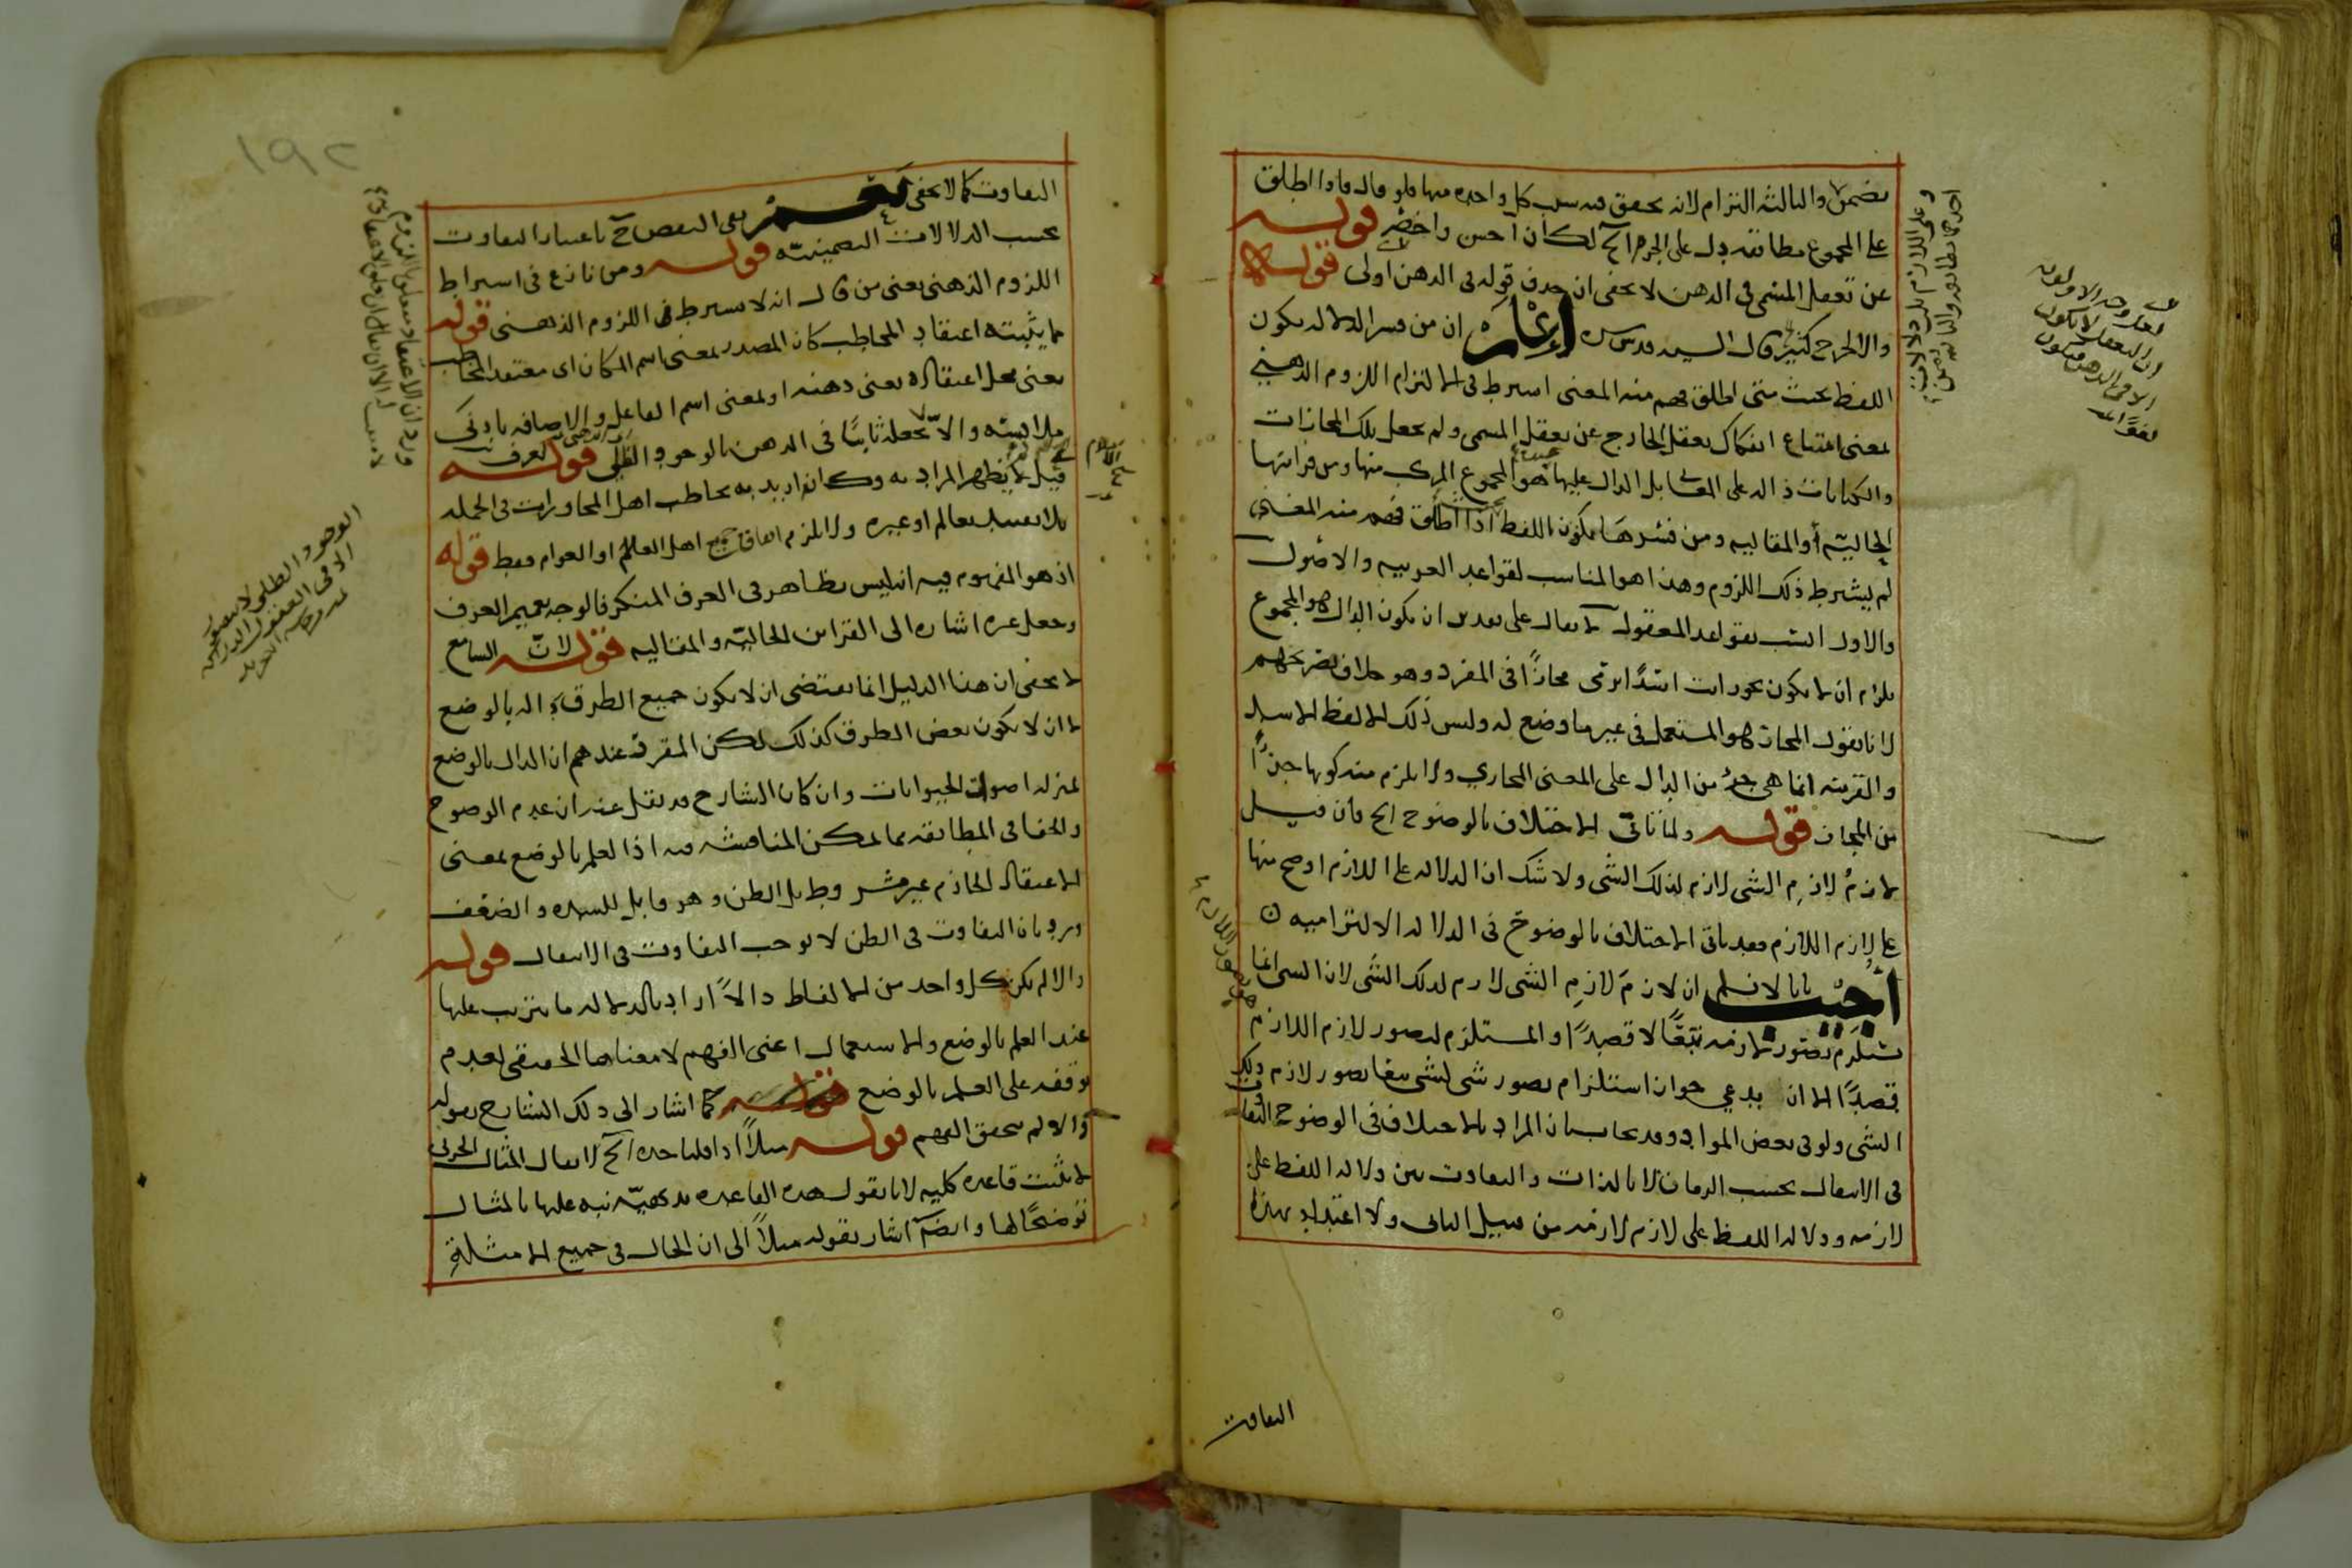 تضمن والثالثة التزام لانه يحقق فيه سبب كل واحدة منها فلو قال فاذا اطلق
على المجموع مطابقة يدل على الجزء الخ لكان احسن واخصر قوله
عن تعقل المسمى في الذهن لا يخفى ان حذف قوله في الذهن اولى قوله
والا لخرج كثير قال السيد قدس سره اعلم ان من فسر الدلالة بكون
اللفظ بحيث متى اطلق فهم منه المعنى اشترط في الالتزام اللزوم الذهني
بمعنى امتناع انفكاك تعقل الخارج عن تعقل المسمى ولم يجعل تلك المجازات
والكنايات دالة على المعنى بل الدال عليها هو المجموع المركب منها ومن قرائنها
الحالية أو المقالية ومن فسرها بكون اللفظ اذا اطلق فهم منه المعنى
لم يشترط ذلك اللزوم وهذا هو المناسب لقواعد العربية والاصول
والاول انسب بقواعد المعقول لا يقال على تقدير ان يكون الدال هو المجموع
يلزم ان لا يكون نحو رايت اسدا يرمى مجازا في المفرد وهو خلاف تصريحهم
لانا نقول المجاز هو المستعمل في غير ما وضع له وليس ذلك الا لفظ الاسد
والقرينة انما هي جزء من الدال على المعنى المجازي ولا يلزم منه كونها جزءا
من المجاز قوله ولما تأتى الاختلاف بالوضوح الخ فان قيل
لازم لازم الشى لازم لذلك الشى ولا شك ان الدلالة على اللازم اوضح منها
على لازم اللازم فقد تاتى الاختلاف بالوضوح في الدلالة الالتزامية
اجيب بانا لا نسلم ان لازم لازم الشى لازم لذلك الشى لان الشى انما
يستلزم تصور لازمه تبعا لا قصدا والمستلزم لتصور لازم اللازم
قصدا الا ان يدعى جواز استلزام تصور شى لشى تبعا تصور لازم ذلك
الشى ولو في بعض المواد وقد يجاب بان المراد بالاختلاف في الوضوح التفاوت
في الانتقال بحسب الزمان لا بالذات والتفاوت بين دلالة اللفظ على
لازمه ودلالة اللفظ على لازم لازمه من قبيل الثاني ولا اعتداد بهذا
التفاوت
١٩٢
التفاوت كما لا يخفى نعم بقى النقض ح باعتبار التفاوت
بحسب الدلالات التضمنية قوله ومن نازع في اشتراط
اللزوم الذهنى يعنى من قال انه لا يشترط في اللزوم الذهنى قوله
ما يثبته اعتقاد المخاطب كان المصدر بمعنى اسم المكان اى معتقد المخاطب
يعنى محل اعتقاده يعنى ذهنه او بمعنى اسم الفاعل والاضافة بادنى
ملابسة والا يجعله ثابتا في الذهن بالوجود الظلى قوله لعرف
قيل لا يظهر المراد به وكانه اريد به تخاطب اهل المحاورات في الجملة
بلا تقييد بعالم او غيره ولا يلزم اتفاق جميع اهل العالم او العوام فقط قوله
اذ هو المفهوم فيه انه ليس بظاهر في العرف المنكر فالوجه تعميم العرف
وجعل غيره اشارة الى القرائن الحالية والمقالية قوله لان السامع
لا يخفى ان هذا الدليل انما يقتضى ان لا يكون جميع الطرق دالة بالوضع
لا ان لا يكون بعض الطرق كذلك لكن المقرر عندهم ان الدال بالوضع
بمنزلة اصوات الحيوانات وان كان الشارح قد نقل عنه ان عدم الوضوح
والخفا في المطابقة مما يمكن المناقشة فيه اذ العلم بالوضع بمعنى
الاعتقاد الجازم غير مشروط بل الظن وهو قابل للشدة والضعف
ويرد بان التفاوت في الظن لا يوجب التفاوت في الانتقال قوله
والا لم يكن كل واحد من الالفاظ دالا اراد بالدلالة ما يترتب عليها
عند العلم بالوضع والاستعمال اعنى الفهم لا معناها الحقيقى لعدم
توقفه على العلم بالوضع كما اشار الى ذلك الشارح بقوله
والا لم يتحقق الفهم قوله مثلا اذا قلنا خده الخ لا يقال المثال الجزئى
لا يثبت قاعدة كلية لانا نقول هذه القاعدة بديهية نبه عليها بالمثال
توضيحا لها وايضا اشار بقوله مثلا الى ان الحال في جميع الامثلة